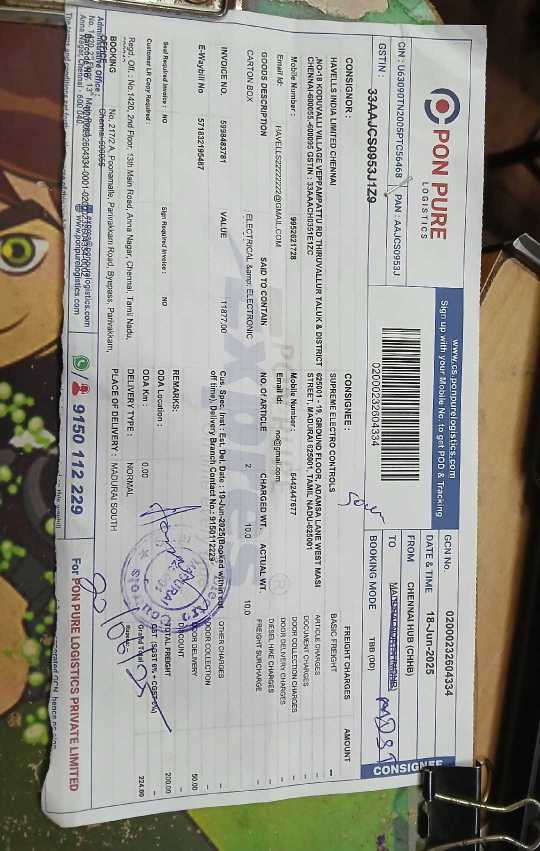 PON PURE
LOGISTICS
www.cs.ponpurelogistics.com
Sign up with your Mobile No. to get POD & Tracking
CIN : U63090TN2005PTC56468 PAN : AAJCS0953J
GSTIN : 33AAJCS0953J1Z9
02000232604334
GCN No. 02000232604334
DATE & TIME 18-Jun-2025
FROM CHENNAI HUB (CHHB)
TO
BOOKING MODE TBB (DD)
CONSIGNEE
CONSIGNOR :
HAVELLS INDIA LIMITED CHENNAI
,NO-19 KODUVALLI VILLAGE VEPPAMPATTU RD THIRUVALLUR TALUK & DISTRICT
CHENNAI-600055,-600095 GSTIN : 33AAACH0351E1ZC
Mobile Number : 9952621728
Email Id: HAVELLS2222222@GMAIL.COM
CONSIGNEE:
SUPREME ELECTRO CONTROLS
625001 - 19, GROUND FLOOR, ADAMSA LANE WEST MASI
STREET, MADURAI 625001, TAMIL NADU-625001
Mobile Number : 6442347677
Email Id: no@gmail.com
FREIGHT CHARGES AMOUNT
BASIC FREIGHT --
ARTICLE CHARGES --
DOCUMENT CHARGES --
DOOR COLLECTION CHARGES --
DOOR DELIVERY CHARGES --
DIESEL HIKE CHARGES --
FREIGHT SURCHARGE --
OTHER CHARGES --
DOOR COLLECTION --
DOOR DELIVERY 50.00
DISCOUNT --
TOTAL FREIGHT 200.00
GST (SGST 6% + CGST 6%)
Grand Total (₹) 224.00
GOODS DESCRIPTION SAID TO CONTAIN NO. OF ARTICLE CHARGED WT. ACTUAL WT.
CARTON BOX ELECTRICAL &amp; ELECTRONIC 2 10.0 10.0
INVOICE NO. 5998483781 VALUE 11877.00
Cus. Spec. Inst : Est. Del. Date : 19-Jun-2025(Booked within cut
off time), Delivery Branch Contact No.: 9150112229
E-Waybill No 571832195487
REMARKS:
Seal Required Invoice : NO Sign Required Invoice : NO
ODA Location :
Customer LR Copy Required :
ODA Km : 0.00
Regd. Off. : No.1420, 2nd Floor, 13th Main Road, Anna Nagar, Chennai, Tamil Nadu,
DELIVERY TYPE : NORMAL
BOOKING No. 217/2 A, Poonamalle, Parivakkam Road, Byepass, Parivakkam,
OFFICE:
PLACE OF DELIVERY : MADURAI SOUTH
Administrative Office :
Anna Nagar, Chennai - 600 040.
www.ponpurelogistics.com
9150 112 229
For PON PURE LOGISTICS PRIVATE LIMITED